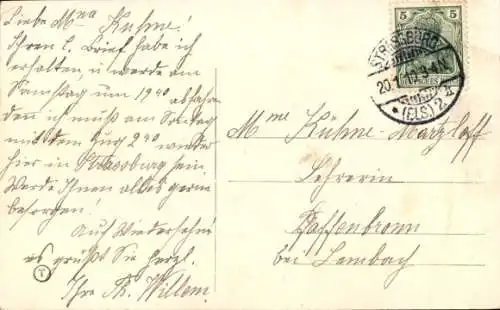 Liebe Mma Kühne!
Ihren l. Brief habe ich
erhalten, u. werde am
Samstag um 1940 abfahren
den ich muß am Sonntag
mit dem Zug 240 wieder
hier in Strassburg sein.
Werde Ihnen alles gerne
besorgen!
Auf Wiedersehn!
es grüßt Sie herzl.
Ihre Th. Willem.
5 5
STRASSBURG
20.
* (ELS) 2
Mme Kühne-Marzloff
Lehrerin
Daffenbronn
bei Lembach